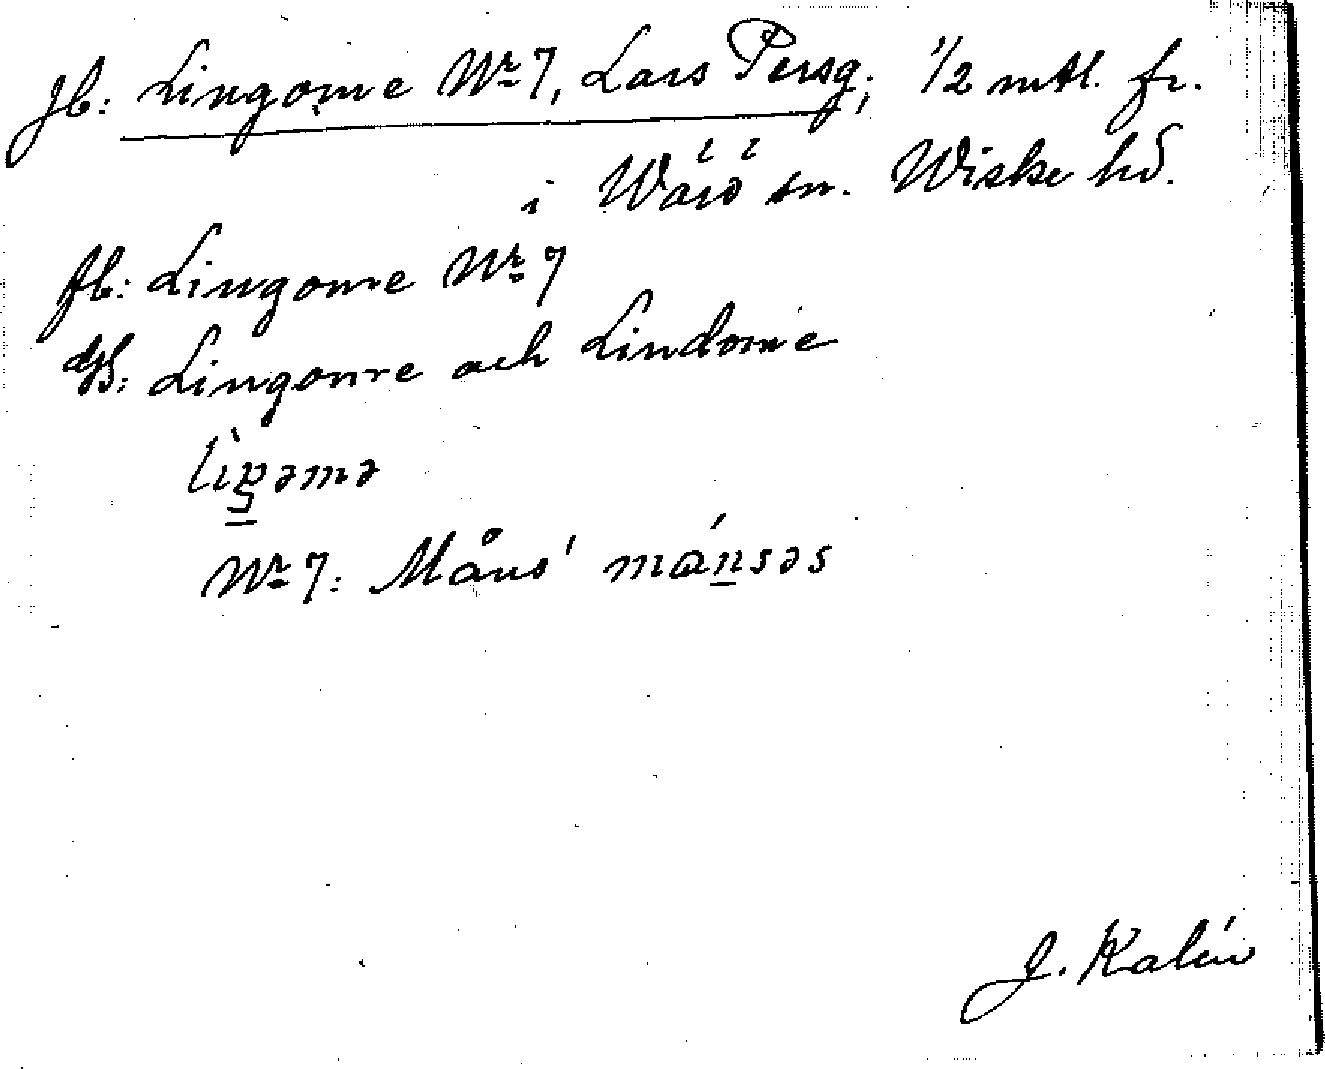 Jb: Lingome Nr 7, Lars Persg; 1/2 mtl. fr.
i Wärö sn. Wiske hd.
Jb: Lingome Nr 7
Lingome och Lindome
Nr 7: Måns' mánsəs
J. Kalén